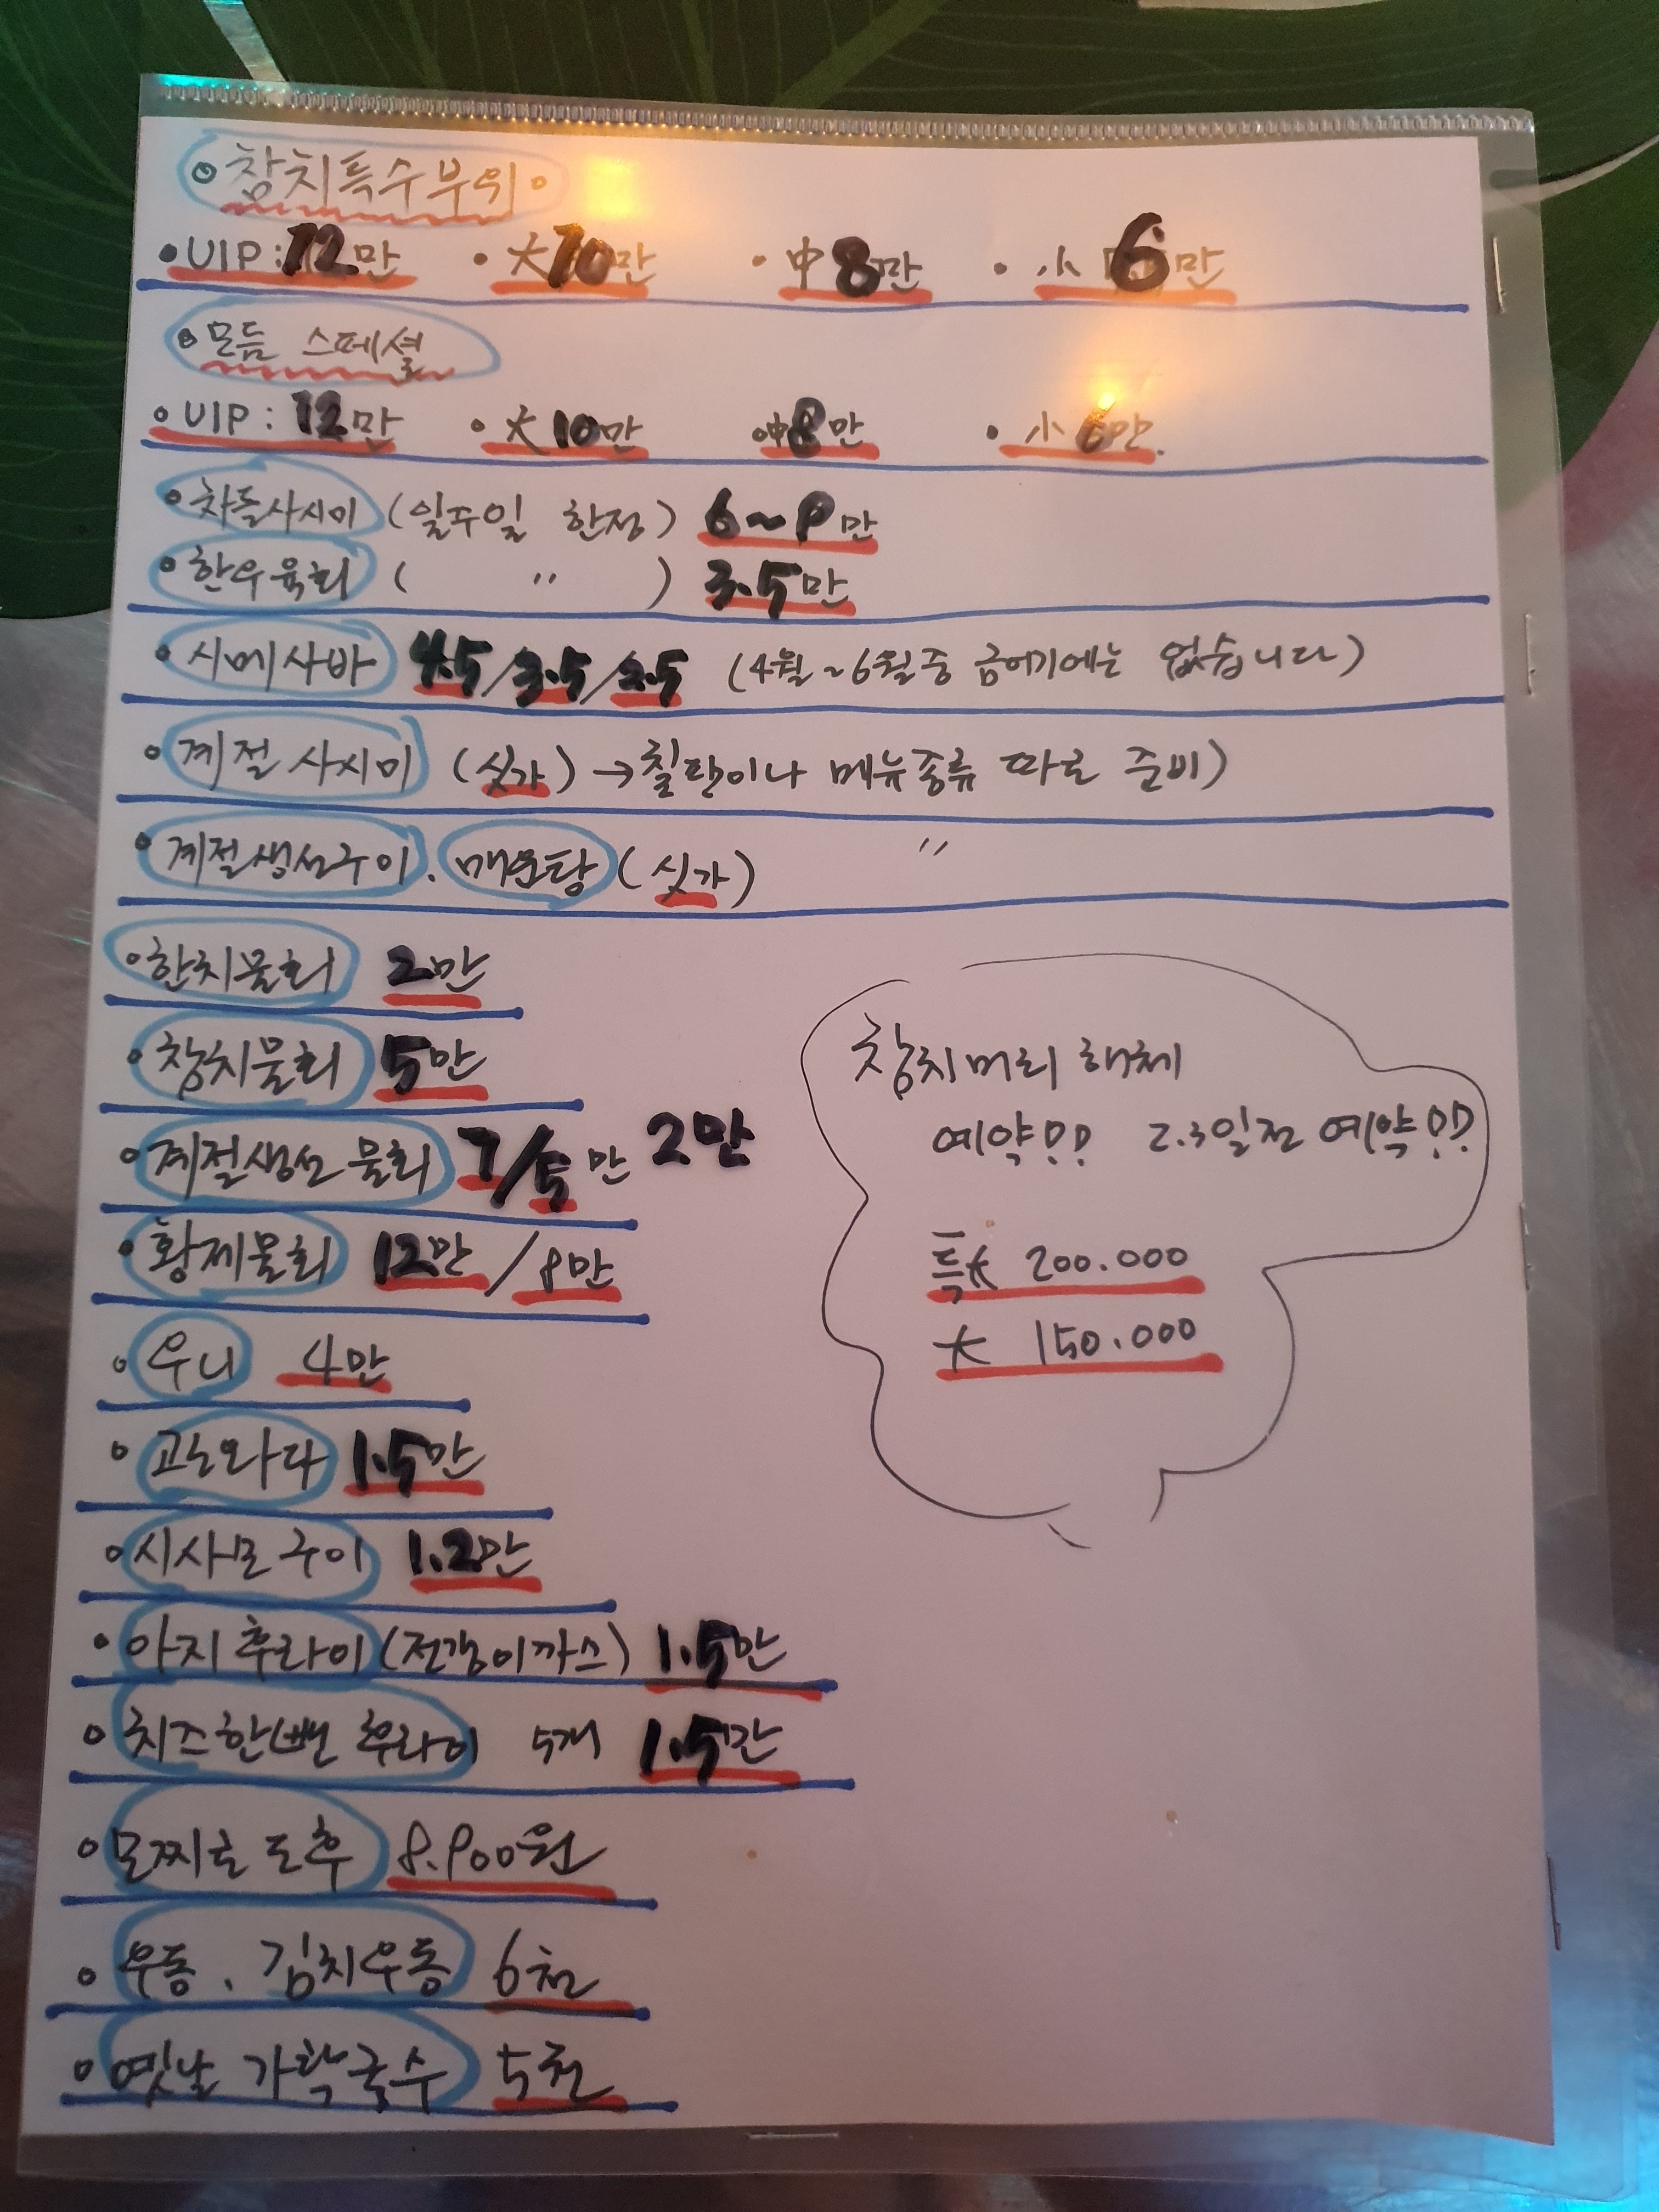 참치특수부위
VIP: 12만 大 10만 中 8만 小 6만
모듬 스페셜
VIP: 12만 大 10만 中 8만 小 6만
차돌사시미 (일주일 한정) 6~8만
한우육회 ( 〃 ) 3.5만
시메사바 4.5/3.5/2.5 (4월~6월중 금어기에는 없습니다)
계절 사시미 (싯가) → 칠판이나 메뉴종류 따로 준비)
계절생선구이. 매운탕 (싯가) 〃
한치물회 2만
참치물회 5만
계절생선 물회 7/5만 2만
황제물회 12만/8만
우니 4만
고노와다 1.5만
시사모 구이 1.2만
아지 후라이 (전갱이까스) 1.5만
치즈한뺀 후라이 5개 1.5만
모찌로 도후 8.800원
우동. 김치우동 6천
옛날 가락국수 5천
참치머리 해체
예약!! 2.3일전 예약!!
특大 200.000
大 150.000